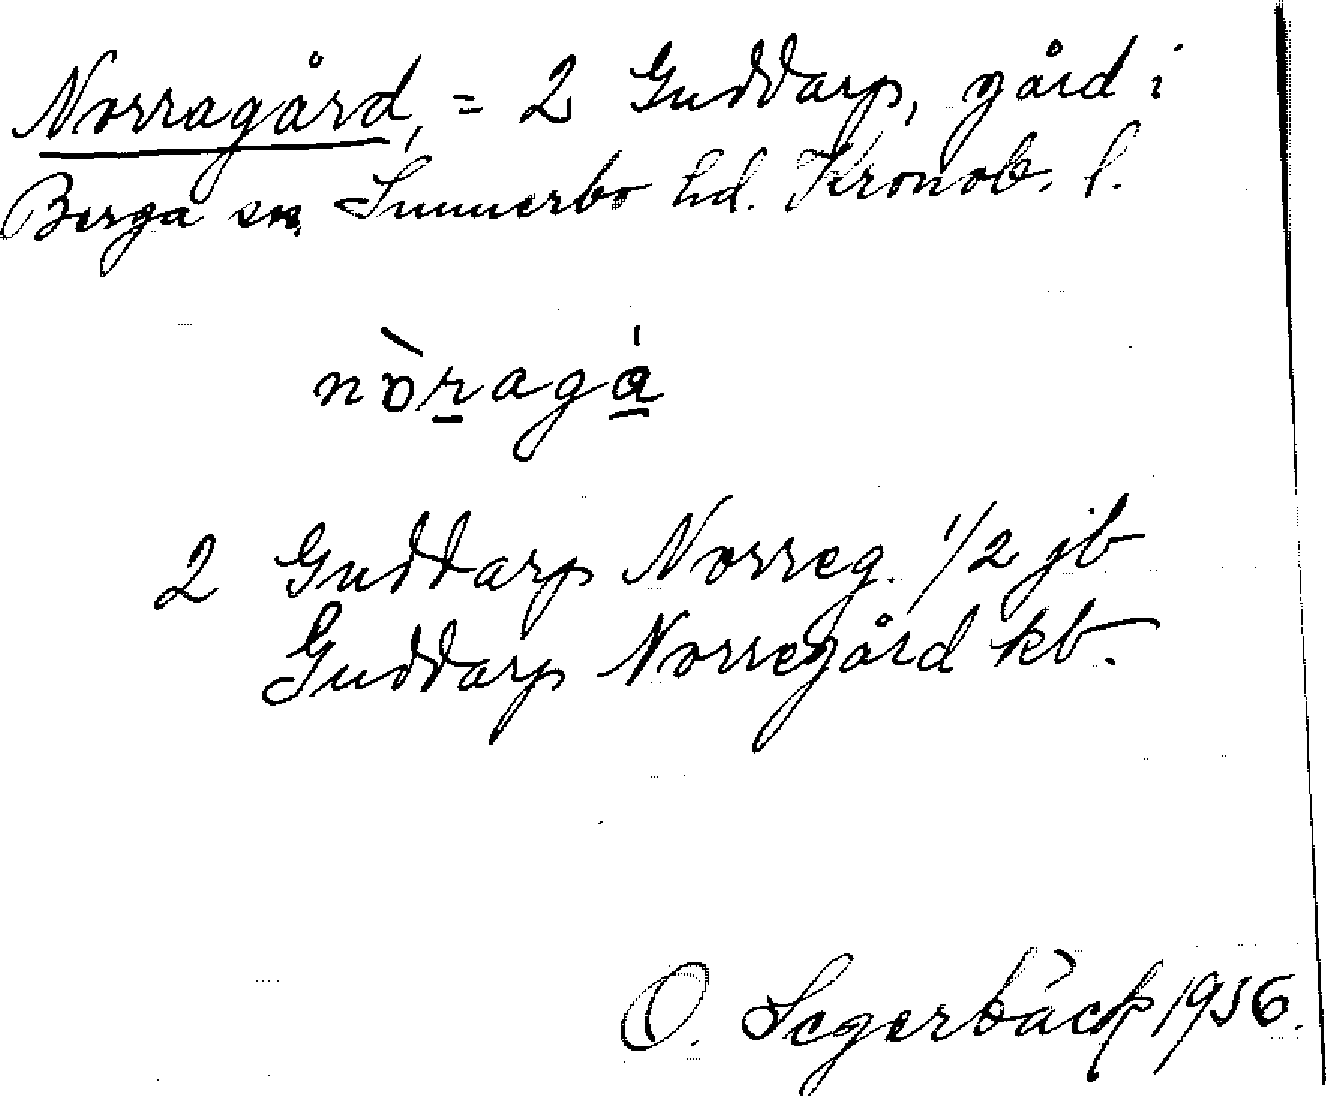 Norragård, = 2 Guddarp, gård i
Berga sn, Sunnerbo hd. Kronob. l.
nòragá
2 Guddarp Norreg. 1/2 jb
Guddarp Norregård kb.
O. Segerbäck 1956.